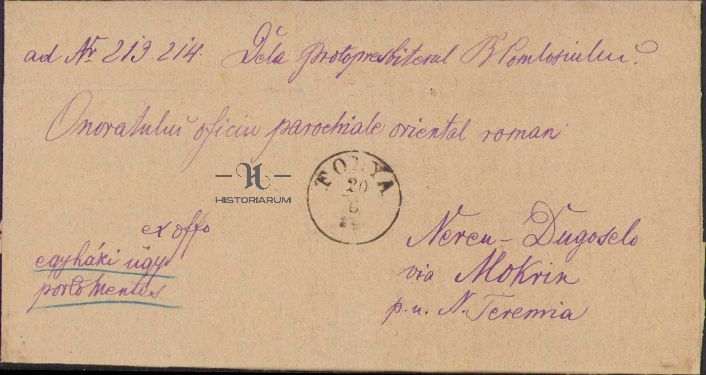 ad Nr 213. 214. Dela Protopresbiterul B Comlosiului.
Onoratului oficiu parochiale oriental roman
HISTORIARUM
FONYA
20
ex offo
egyházi ügy
portomentes
Nereu - Dugoselo
via Mokrin
p. u. N. Teremia